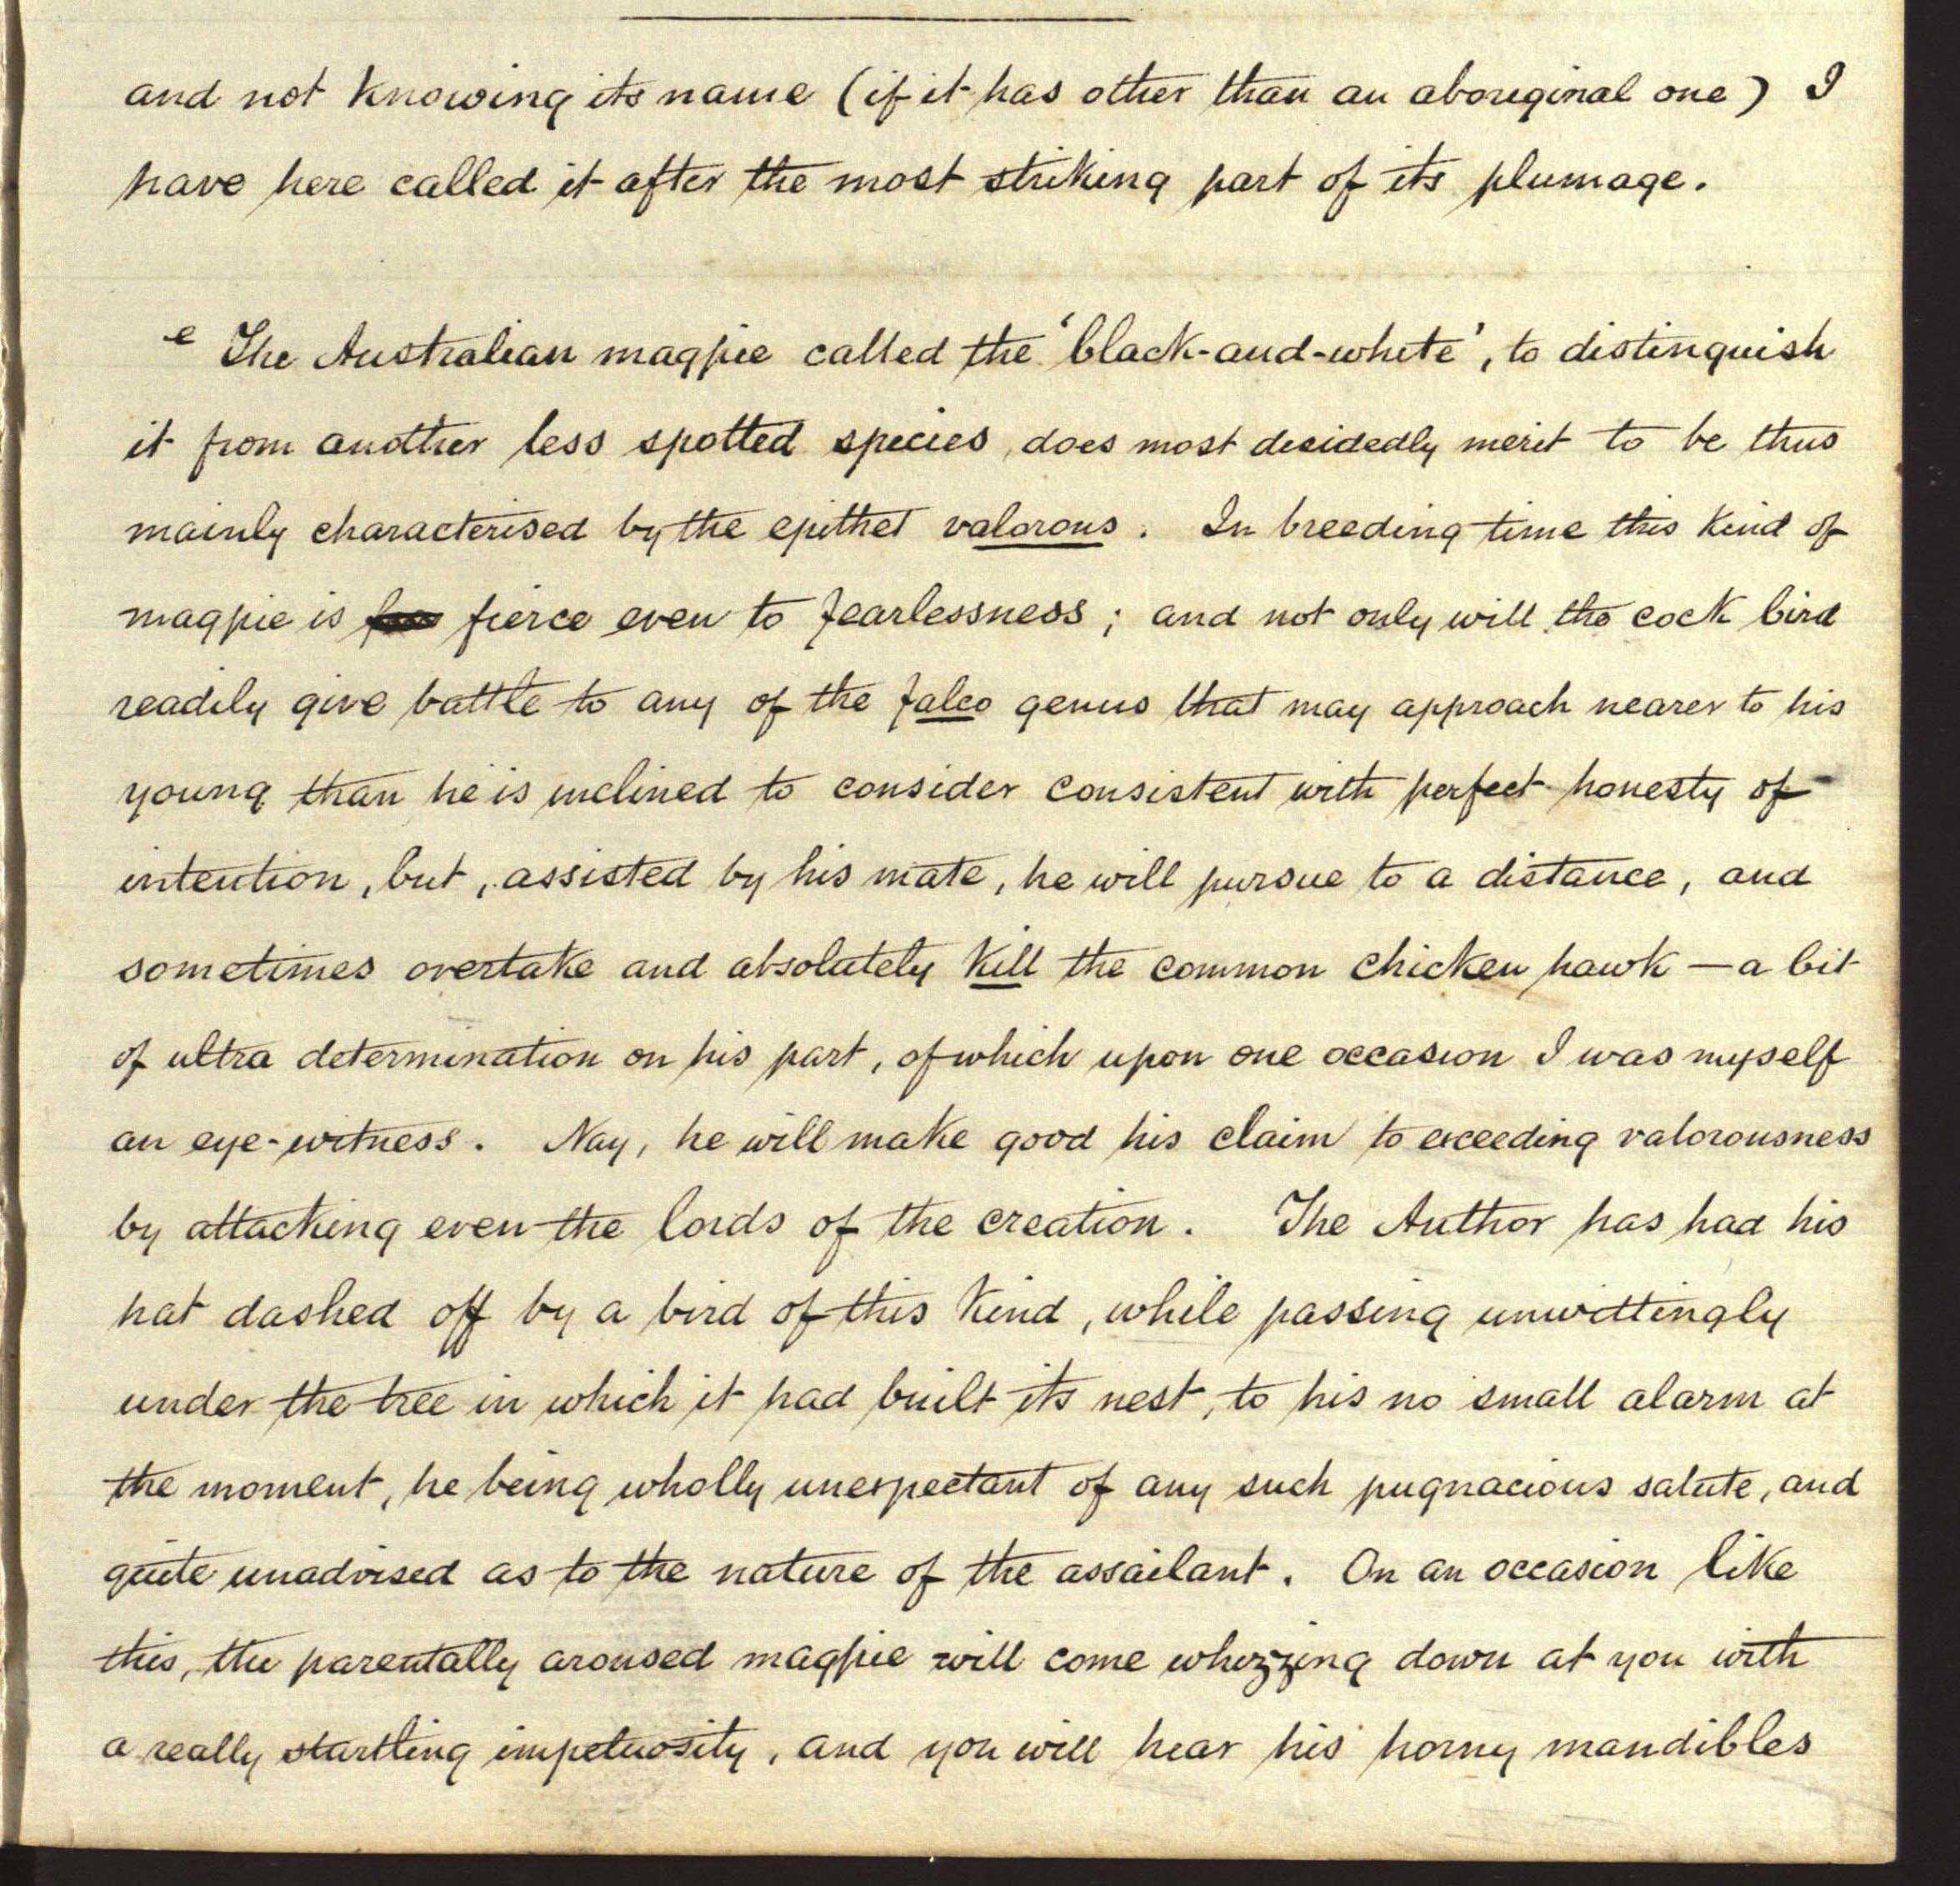 and not knowing its name (if it has other than an aboriginal one) I
have here called it after the most striking part of its plumage.
e The Australian magpie called the 'black-and-white', to distinguish
it from another less spotted species, does most decidedly merit to be thus
mainly characterised by the epithet valorous. In breeding time this kind of
magpie is fierce even to fearlessness; and not only will the cock bird
readily give battle to any of the falco genus that may approach nearer to his
young than he is inclined to consider consistent with perfect honesty of
intention, but, assisted by his mate, he will pursue to a distance, and
sometimes overtake and absolutely kill the common chicken hawk — a bit
of ultra determination on his part, of which upon one occasion I was myself
an eye-witness. Nay, he will make good his claim to exceeding valorousness
by attacking even the lords of the creation. The Author has had his
hat dashed off by a bird of this kind, while passing unwittingly
under the tree in which it had built its nest, to his no small alarm at
the moment, he being wholly unexpectant of any such pugnacious salute, and
quite unadvised as to the nature of the assailant. On an occasion like
this, the parentally aroused magpie will come whizzing down at you with
a really startling impetuosity, and you will hear his horny mandibles